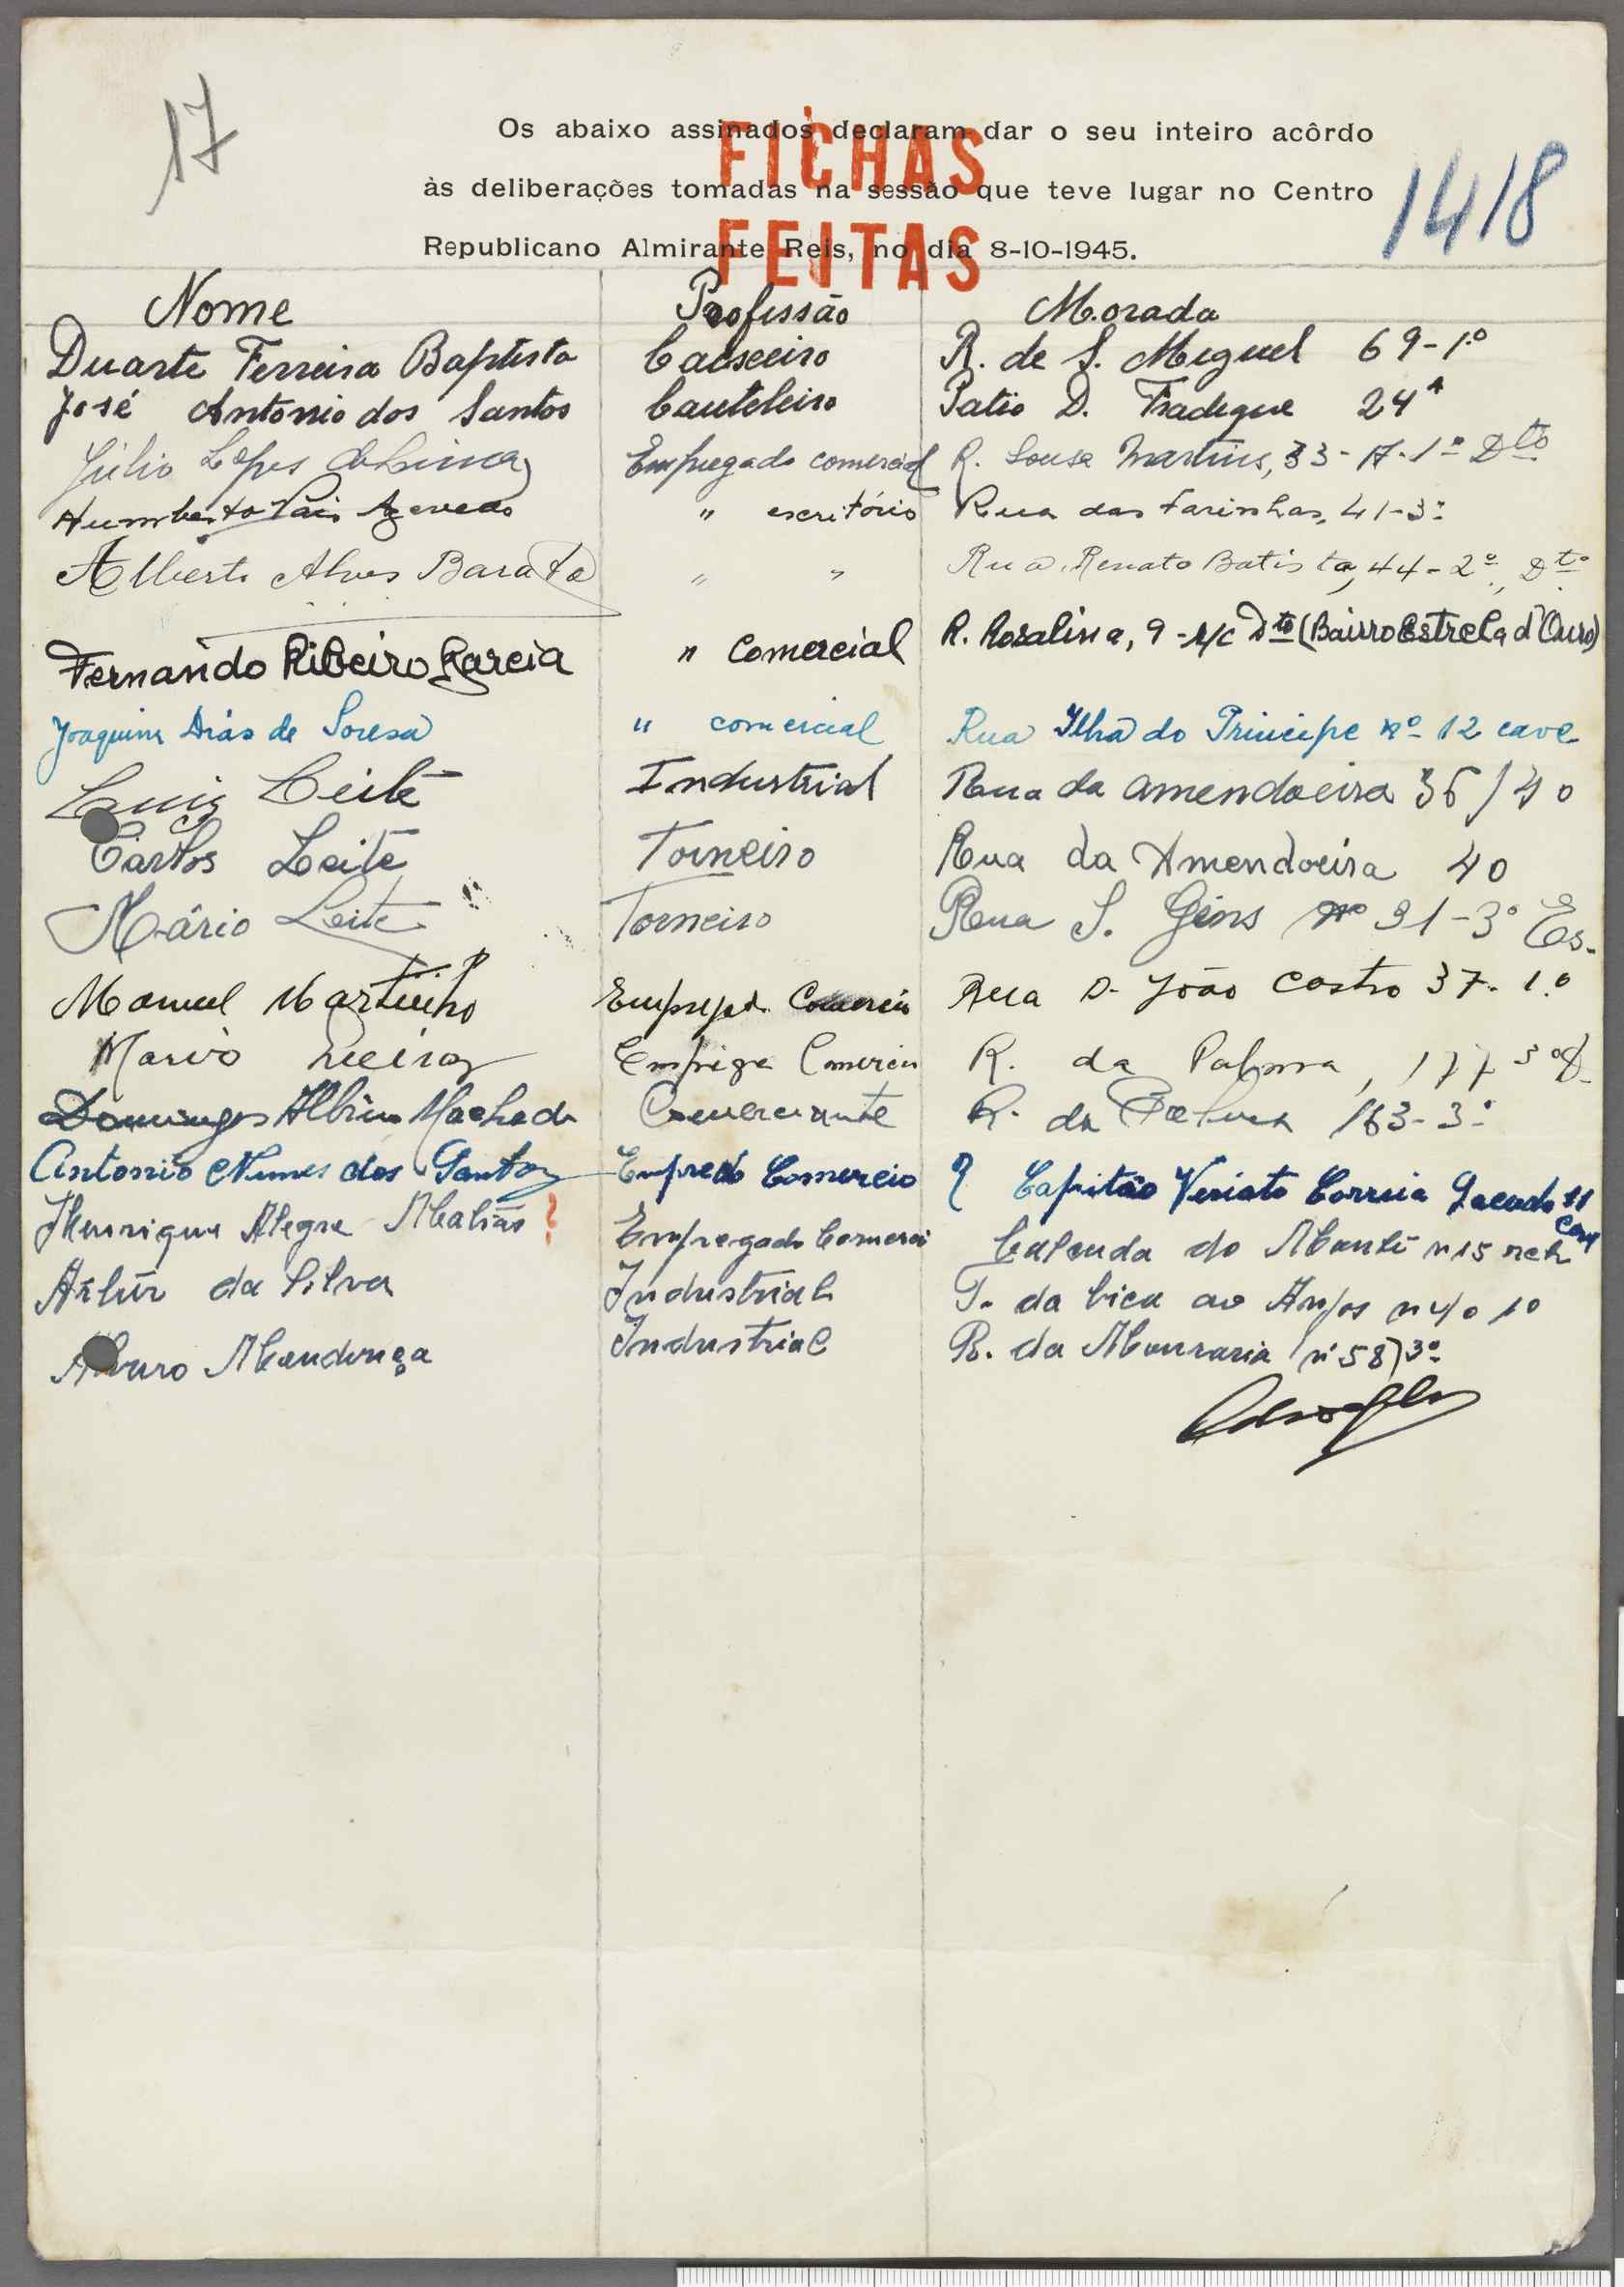 17
Os abaixo assinados declaram dar o seu inteiro acôrdo
às deliberações tomadas na sessão que teve lugar no Centro
Republicano Almirante Reis, no dia 8-10-1945.
FICHAS
FEITAS
1418
Nome Profissão Morada
Duarte Ferreira Baptista R. de S. Miguel 69-1.º
José Antonio dos Santos Cauteleiro Patio D. Fradique 24A
Júlio Lopes de Lima Empregado comercial R. Sousa Martins, 33-A-1º Dto
Humberto Pais Azevedo " escritório Rua das Farinhas, 41-3º
Alberto Alves Barata " " Rua Renato Batista, 44-2º, Dto
Fernando Ribeiro Garcia " Comercial R. Rosalina, 9-r/c Dto (Bairro Estrela d'Ouro)
Joaquim Dias de Sousa " comercial Rua Ilha do Principe nº 12 cave
Luiz Leite Industrial Rua da amendoeira 36/40
Carlos Leite Torneiro Rua da Amendoeira 40
Mário Leite Torneiro Rua S. Gens nº 31-3º Es.
Manuel Martinho Rua D. João Castro 37-1.º
Mario Empregº Comercio R. da Palma, 177 3º
Domingos Albino Machado Comerciante R. da Palma 163-3º
Antonio Nunes dos Santos Empredo Comercio R Capitão Veriato Correia Lacerda 11 Cave
Henrique Alegre Matias ? Empregado Comercio Calsada do Monte n 15 rch
Artur da Silva Industrial T. da bica ao Anjos n 40 1º
Alvaro Mendonça Industrial R. da Mouraria nº 58, 3º